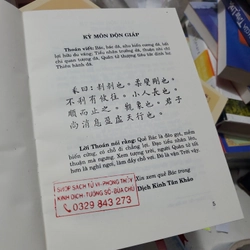 KỲ MÔN ĐỘN GIÁP
Thoán viết: Bác, bác dã, nhu biến cương dã, bất
lợi hữu du vãng; Tiểu nhân trưởng dã, thuận nhi chỉ
chi, quan tượng dã. Quân tử thượng tiêu tức doanh hư
Thiên hành dã.
彖曰：剝剝也。柔變剛也。
不利有攸往。小人長也。
順而止之。觀象也。君子
尚消息盈虛天行也。
Lời Thoán nói rằng: Quẻ Bác là đẽo gọt, mềm
biến cứng, có chỗ đi chẳng lợi. Đạo tiểu nhân lớn,
thuận mà ngưng. Xem tượng trời, người Quân tử
Xin xem quẻ Bác trong
Dịch Kinh Tân Khảo
SHOP SÁCH TỬ VI-PHONG THỦY
KINH DỊCH-TƯỚNG SỐ-BÙA CHÚ
0329 843 273